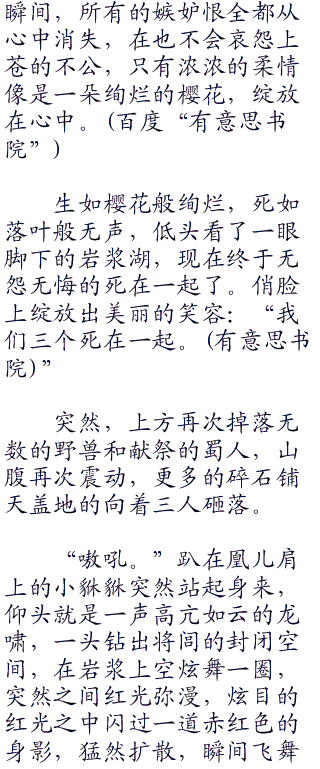 瞬间，所有的嫉妒恨全都从
心中消失，在也不会哀怨上
苍的不公，只有浓浓的柔情
像是一朵绚烂的樱花，绽放
在心中。(百度“有意思书
院”)
生如樱花般绚烂，死如
落叶般无声，低头看了一眼
脚下的岩浆湖，现在终于无
怨无悔的死在一起了。俏脸
上绽放出美丽的笑容：“我
们三个死在一起。(有意思书
院)”
突然，上方再次掉落无
数的野兽和献祭的蜀人，山
腹再次震动，更多的碎石铺
天盖地的向着三人砸落。
“嗷吼。”趴在凰儿肩
上的小貅貅突然站起身来，
仰头就是一声高亢如云的龙
啸，一头钻出将闾的封闭空
间，在岩浆上空炫舞一圈，
突然之间红光弥漫，炫目的
红光之中闪过一道赤红色的
身影，猛然扩散，瞬间飞舞